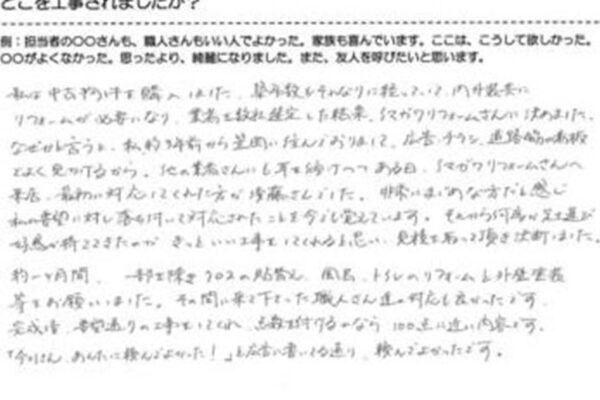 どこを工事されましたか？
例：担当者の〇〇さんも、職人さんもいい人でよかった。家族も喜んでいます。ここは、こうして欲しかった。
〇〇がよくなかった。思ったより、綺麗になりました。また、友人を呼びたいと思います。
私は中古物件を購入しました。築年数もそれなりに経っていて、内外装共に
リフォームが必要になり、業者を数社選定した結果、シマガワリフォームさんに決めました。
なぜかと言うと、私が3年前から笠岡に住んでおりまして、広告・チラシ、道路脇の看板
でよく見かけてるから。他の業者さんにも耳を傾けつつある日、シマガワリフォームさんへ
来店、最初に対応してくれた方が後藤さんでした。非常にまじめな方だと感じ
私の要望に対し落ち付いて対応されたことを今でも覚えています。それから何度か足を運び
好感が持ててきたので きっといい工事をしてくれると思い、見積を取って頂き決断しました。
約一ヶ月間、一部を除きクロスの貼替え、風呂、トイレのリフォームと外壁塗装
等をお願いしました。その間に来て下さった職人さん達の対応も良かったです。
完成後、要望通りの工事をしてくれ、点数を付けるのなら 100点に近い内容です。
あなたに頼んでよかった！」と広告に書いてる通り、頼んでよかったです。